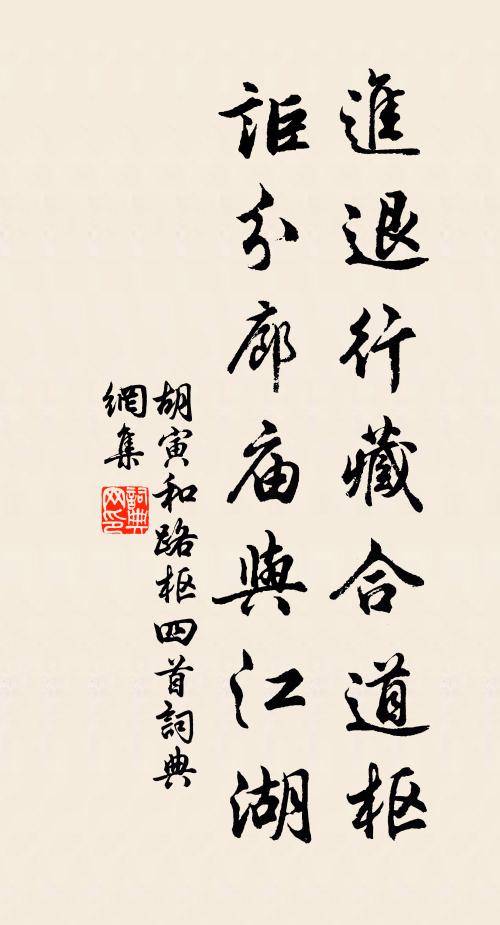 進退行藏合道枢
詎分廊庙與江湖
胡寅和路枢四首詞典
網集
詞典网印